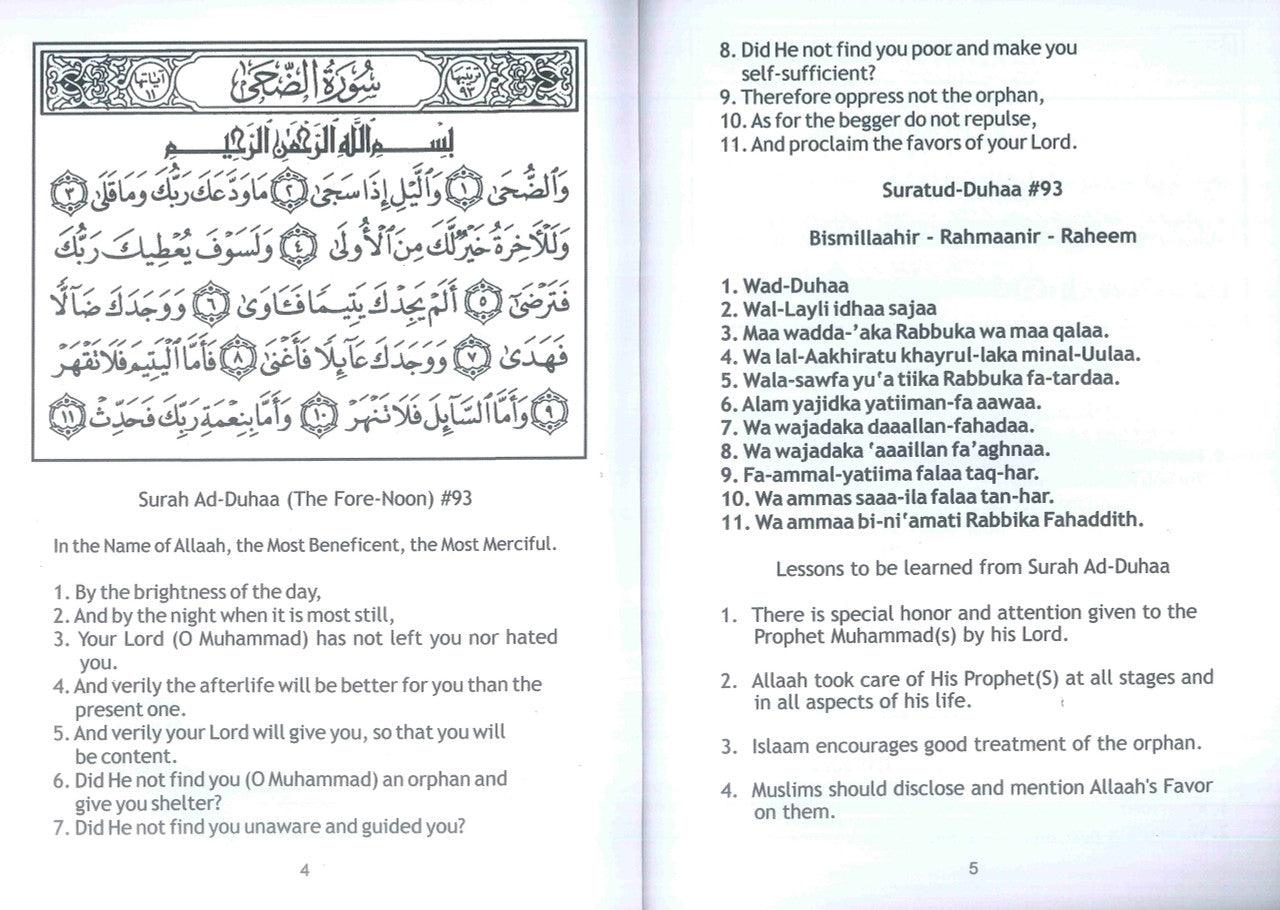 سُورَةُ الضُّحَىٰ
ترتيبها ٩٣
آياتها ١١
بِسْمِ اللَّهِ الرَّحْمَٰنِ الرَّحِيمِ
وَالضُّحَىٰ ١ وَاللَّيْلِ إِذَا سَجَىٰ ٢ مَا وَدَّعَكَ رَبُّكَ وَمَا قَلَىٰ ٣
وَلَلْآخِرَةُ خَيْرٌ لَّكَ مِنَ الْأُولَىٰ ٤ وَلَسَوْفَ يُعْطِيكَ رَبُّكَ
فَتَرْضَىٰ ٥ أَلَمْ يَجِدْكَ يَتِيمًا فَـَٔاوَىٰ ٦ وَوَجَدَكَ ضَالًّا
فَهَدَىٰ ٧ وَوَجَدَكَ عَائِلًا فَأَغْنَىٰ ٨ فَأَمَّا الْيَتِيمَ فَلَا تَقْهَرْ
٩ وَأَمَّا السَّائِلَ فَلَا تَنْهَرْ ١٠ وَأَمَّا بِنِعْمَةِ رَبِّكَ فَحَدِّثْ ١١
Surah Ad-Duhaa (The Fore-Noon) #93
In the Name of Allaah, the Most Beneficent, the Most Merciful.
1. By the brightness of the day,
2. And by the night when it is most still,
3. Your Lord (O Muhammad) has not left you nor hated
you.
4. And verily the afterlife will be better for you than the
present one.
5. And verily your Lord will give you, so that you will
be content.
6. Did He not find you (O Muhammad) an orphan and
give you shelter?
7. Did He not find you unaware and guided you?
4
8. Did He not find you poor and make you
self-sufficient?
9. Therefore oppress not the orphan,
10. As for the begger do not repulse,
11. And proclaim the favors of your Lord.
Suratud-Duhaa #93
Bismillaahir - Rahmaanir - Raheem
1. Wad-Duhaa
2. Wal-Layli idhaa sajaa
3. Maa wadda-'aka Rabbuka wa maa qalaa.
4. Wa lal-Aakhiratu khayrul-laka minal-Uulaa.
5. Wala-sawfa yu‘a tiika Rabbuka fa-tardaa.
6. Alam yajidka yatiiman-fa aawaa.
7. Wa wajadaka daaallan-fahadaa.
8. Wa wajadaka ‘aaaillan fa’aghnaa.
9. Fa-ammal-yatiima falaa taq-har.
10. Wa ammas saaa-ila falaa tan-har.
11. Wa ammaa bi-ni‘amati Rabbika Fahaddith.
Lessons to be learned from Surah Ad-Duhaa
1. There is special honor and attention given to the
Prophet Muhammad(s) by his Lord.
2. Allaah took care of His Prophet(S) at all stages and
in all aspects of his life.
3. Islaam encourages good treatment of the orphan.
4. Muslims should disclose and mention Allaah's Favor
on them.
5